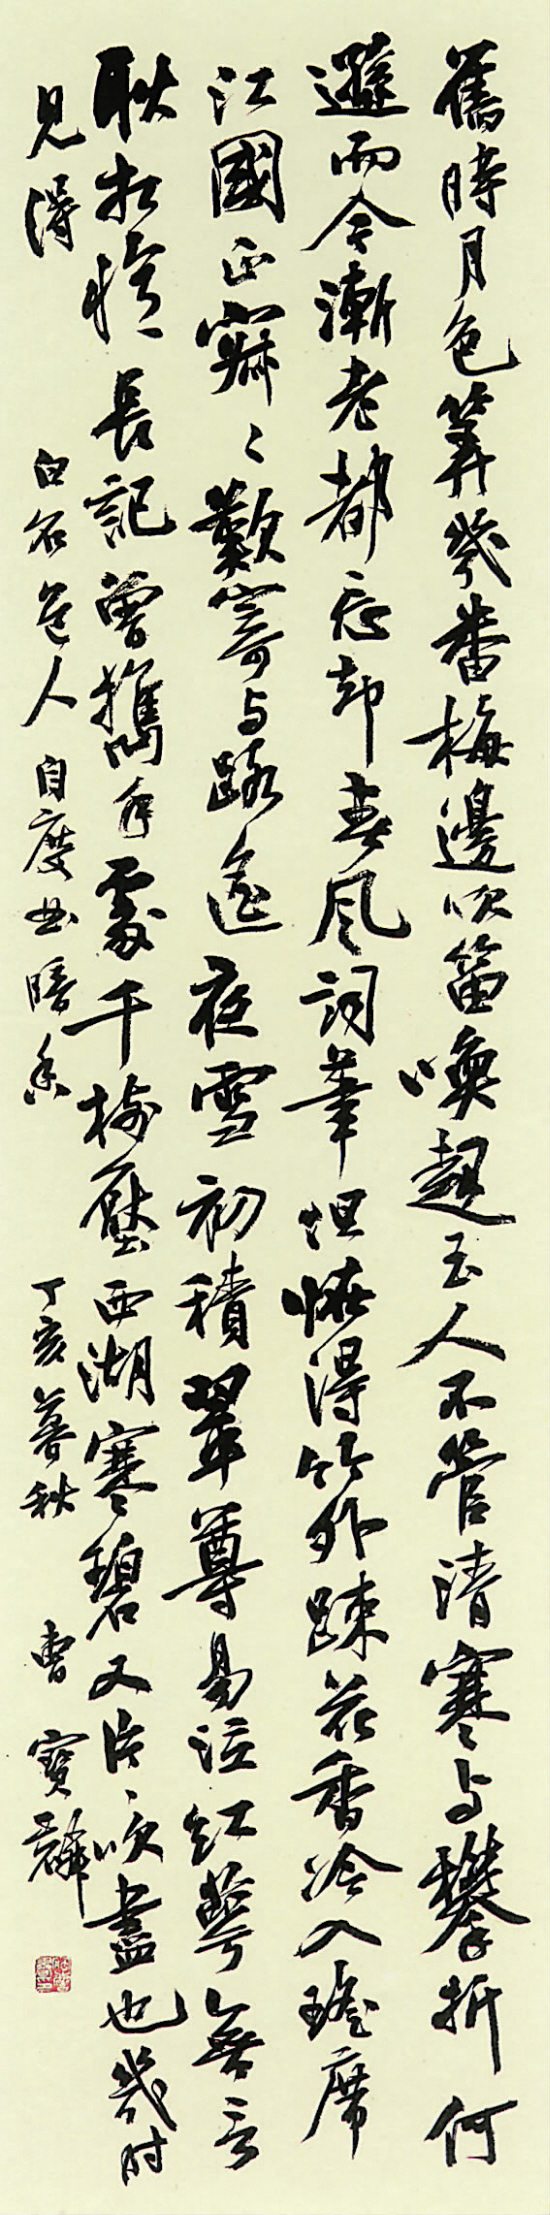 舊時月色算幾番梅邊吹笛喚起玉人不管清寒與攀折何
遜而今漸老都忘却春風詞筆但怪得竹外疎花香冷入瑤席
江國正寂々歎寄与路遙夜雪初積翠尊易泣紅萼無言
耿相憶長記曾攜手處千樹壓西湖寒碧又片、吹盡也幾時
見得
白石道人自度曲暗香 丁亥暮秋 曹寶麟